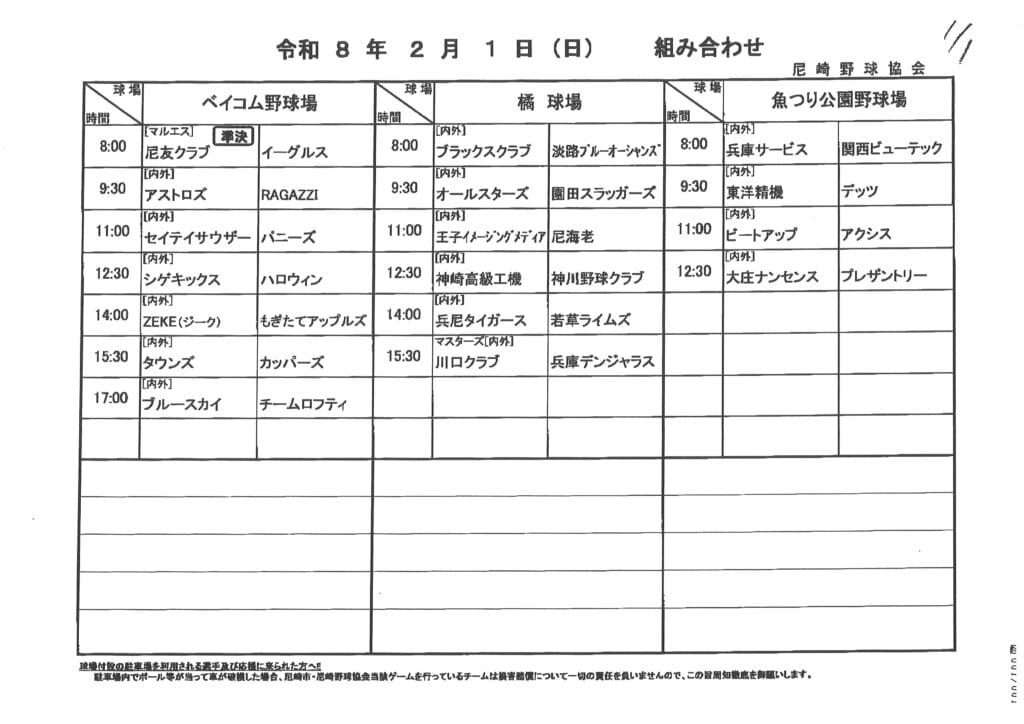 令和 8 年 2 月 1 日（日） 組み合わせ
尼崎野球協会
球場 時間 ベイコム野球場 球場 時間 橘 球場 球場 時間 魚つり公園野球場
8:00 [マルエス] 準決 尼友クラブ イーグルス 8:00 [内外] ブラックスクラブ 淡路ブルーオーシャンズ 8:00 [内外] 兵庫サービス 関西ビューテック
9:30 [内外] アストロズ RAGAZZI 9:30 [内外] オールスターズ 園田スラッガーズ 9:30 [内外] 東洋精機 デッツ
11:00 [内外] セイテイサウザー バニーズ 11:00 [内外] 王子イメージングメディア 尼海老 11:00 [内外] ビートアップ アクシス
12:30 [内外] シゲキックス ハロウィン 12:30 [内外] 神崎高級工機 神川野球クラブ 12:30 [内外] 大庄ナンセンス プレザントリー
14:00 [内外] ZEKE(ジーク) もぎたてアップルズ 14:00 [内外] 兵尼タイガース 若草ライムズ
15:30 [内外] タウンズ カッパーズ 15:30 マスターズ[内外] 川口クラブ 兵庫デンジャラス
17:00 [内外] ブルースカイ チームロフティ
球場付設の駐車場を利用される選手及び応援に来られた方へ!!
駐車場内でボール等が当って車が破損した場合、尼崎市・尼崎野球協会当該ゲームを行っているチームは損害賠償について一切の責任を負いませんので、この旨周知徹底を御願いします。